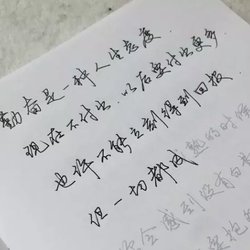 勤奋是一种人生态度
现在不付出，以后要付出更多
也许不能立刻得到回报
但一切都
会感到没有